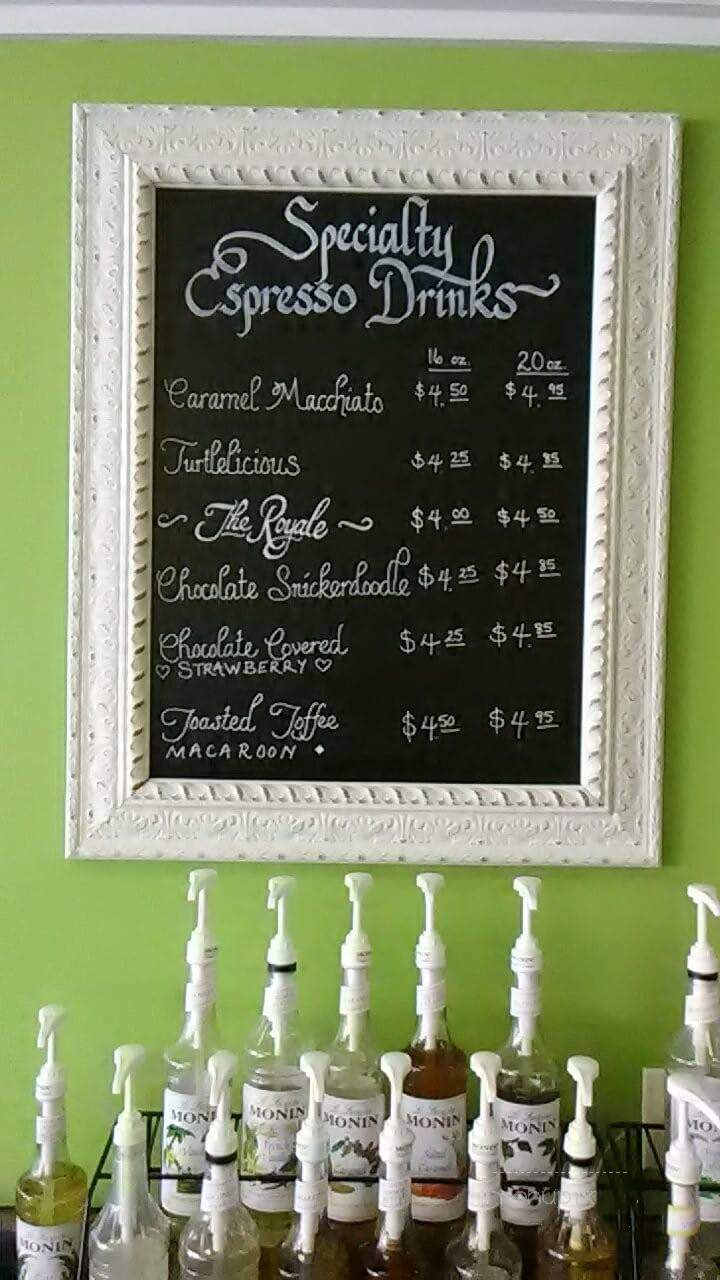 Specialty
Espresso Drinks
16 oz. 20 oz.
Caramel Macchiato $4.50 $4.95
Turtlelicious $4.25 $4.85
~ The Royale ~ $4.00 $4.50
Chocolate Snickerdoodle $4.25 $4.85
Chocolate Covered $4.25 $4.85
♡ STRAWBERRY ♡
Toasted Toffee $4.50 $4.95
MACAROON ◆
MONIN MONIN MONIN MONIN
MONIN